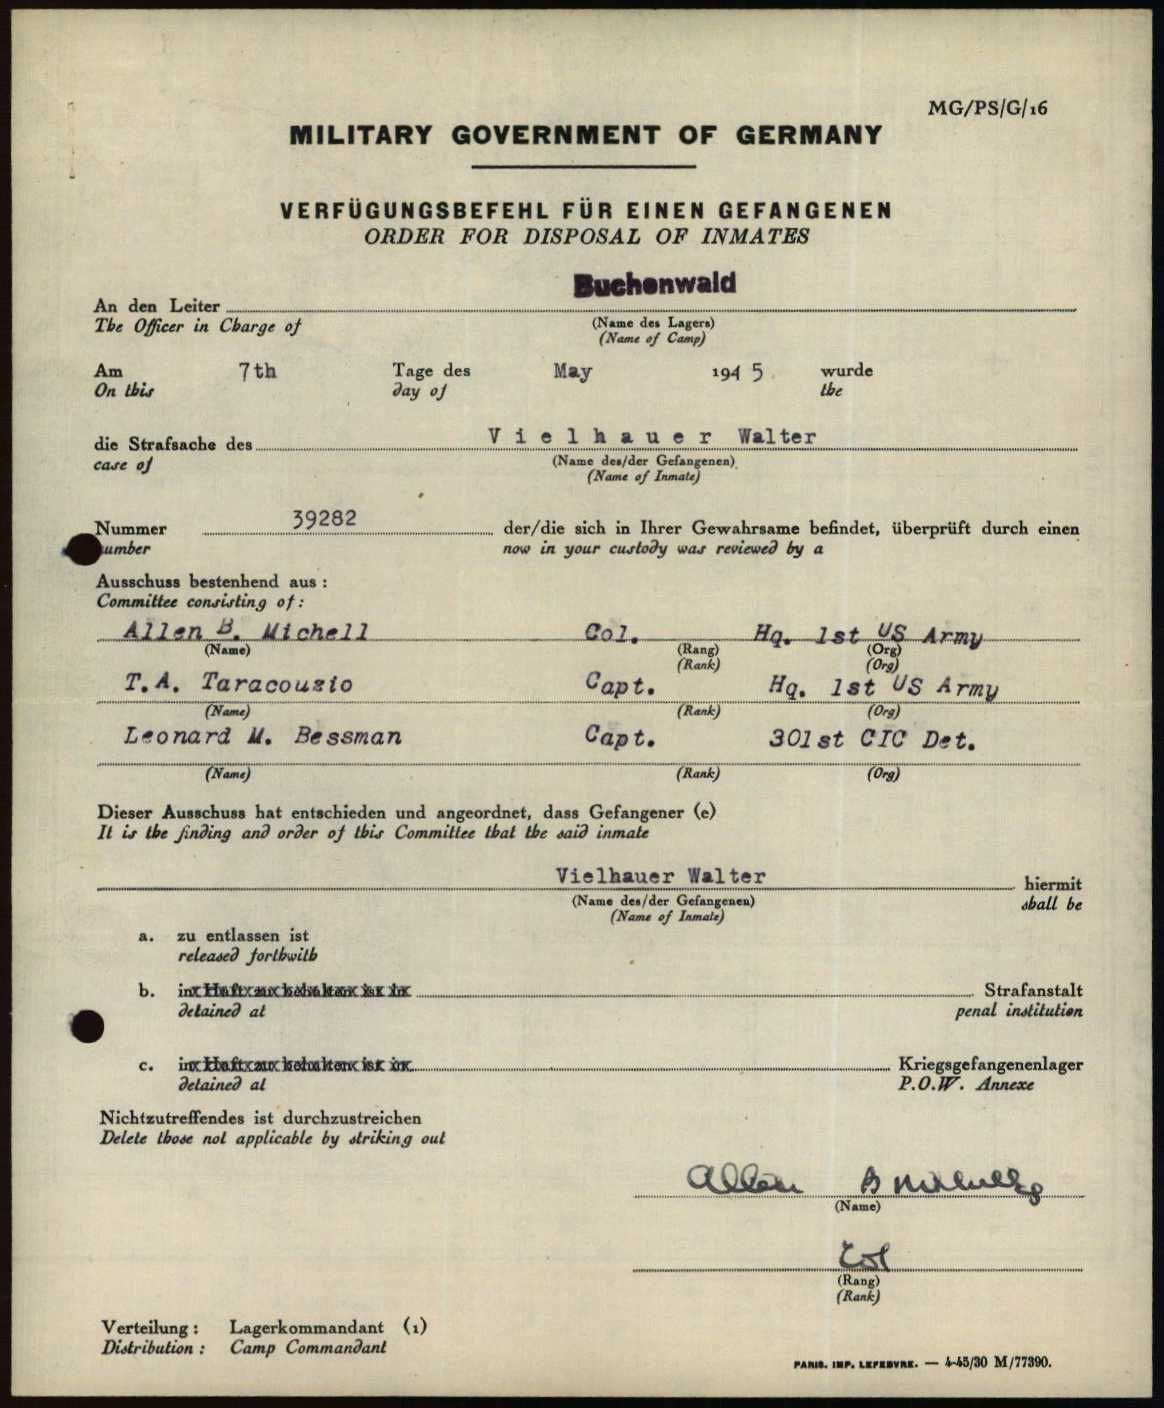 MG/PS/G/16
MILITARY GOVERNMENT OF GERMANY
VERFÜGUNGSBEFEHL FÜR EINEN GEFANGENEN
ORDER FOR DISPOSAL OF INMATES
Buchenwald
An den Leiter
The Officer in Charge of
(Name des Lagers)
(Name of Camp)
Am 7th Tage des May 194 5 wurde
On this day of the
die Strafsache des V i e l h a u e r Walter
case of
(Name des/der Gefangenen)
(Name of Inmate)
Nummer 39282 der/die sich in Ihrer Gewahrsame befindet, überprüft durch einen
umber now in your custody was reviewed by a
Ausschuss bestenhend aus :
Committee consisting of :
Allen B. Michell Col. Hq. 1st US Army
(Name) (Rang) (Org)
(Rank) (Org)
T.A. Taracouzio Capt. Hq. 1st US Army
(Name) (Rank) (Org)
Leonard M. Bessman Capt. 301st CIC Det.
(Name) (Rank) (Org)
Dieser Ausschuss hat entschieden und angeordnet, dass Gefangener (e)
It is the finding and order of this Committee that the said inmate
Vielhauer Walter hiermit
(Name des/der Gefangenen) shall be
(Name of Inmate)
a. zu entlassen ist
released forthwith
b. in Haft zu behalten ist in Strafanstalt
detained at penal institution
c. in Haft zu behalten ist in Kriegsgefangenenlager
detained at P.O.W. Annexe
Nichtzutreffendes ist durchzustreichen
Delete those not applicable by striking out
Allen B
(Name)
Col
(Rang)
(Rank)
Verteilung : Lagerkommandant (1)
Distribution : Camp Commandant
PARIS. IMP. LEFEBVRE. — 4-45/30 M/77390.